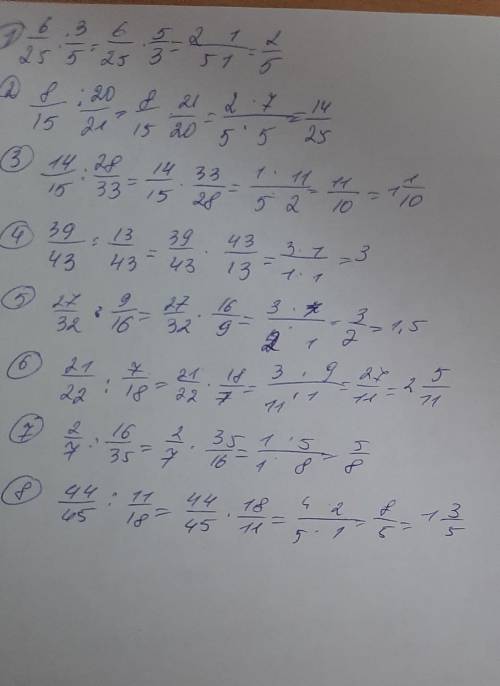 1) 6/25 : 3/5 = 6/25 · 5/3 = 2 1/5·1 = 2/5
2) 8/15 : 20/21 = 8/15 21/20 = 2·7/5·5 = 14/25
3) 14/15 : 28/33 = 14/15 · 33/28 = 1·11/5·2 = 11/10 = 1 1/10
4) 39/43 : 13/43 = 39/43 · 43/13 = 3·1/1·1 = 3
5) 27/32 : 9/16 = 27/32 · 16/9 = 3·1/2·1 = 3/2 = 1,5
6) 21/22 : 7/18 = 21/22 · 18/7 = 3·9/11·1 = 27/11 = 2 5/11
7) 2/7 : 16/35 = 2/7 · 35/16 = 1·5/1·8 = 5/8
8) 44/45 : 11/18 = 44/45 · 18/11 = 4·2/5·1 = 8/5 = 1 3/5